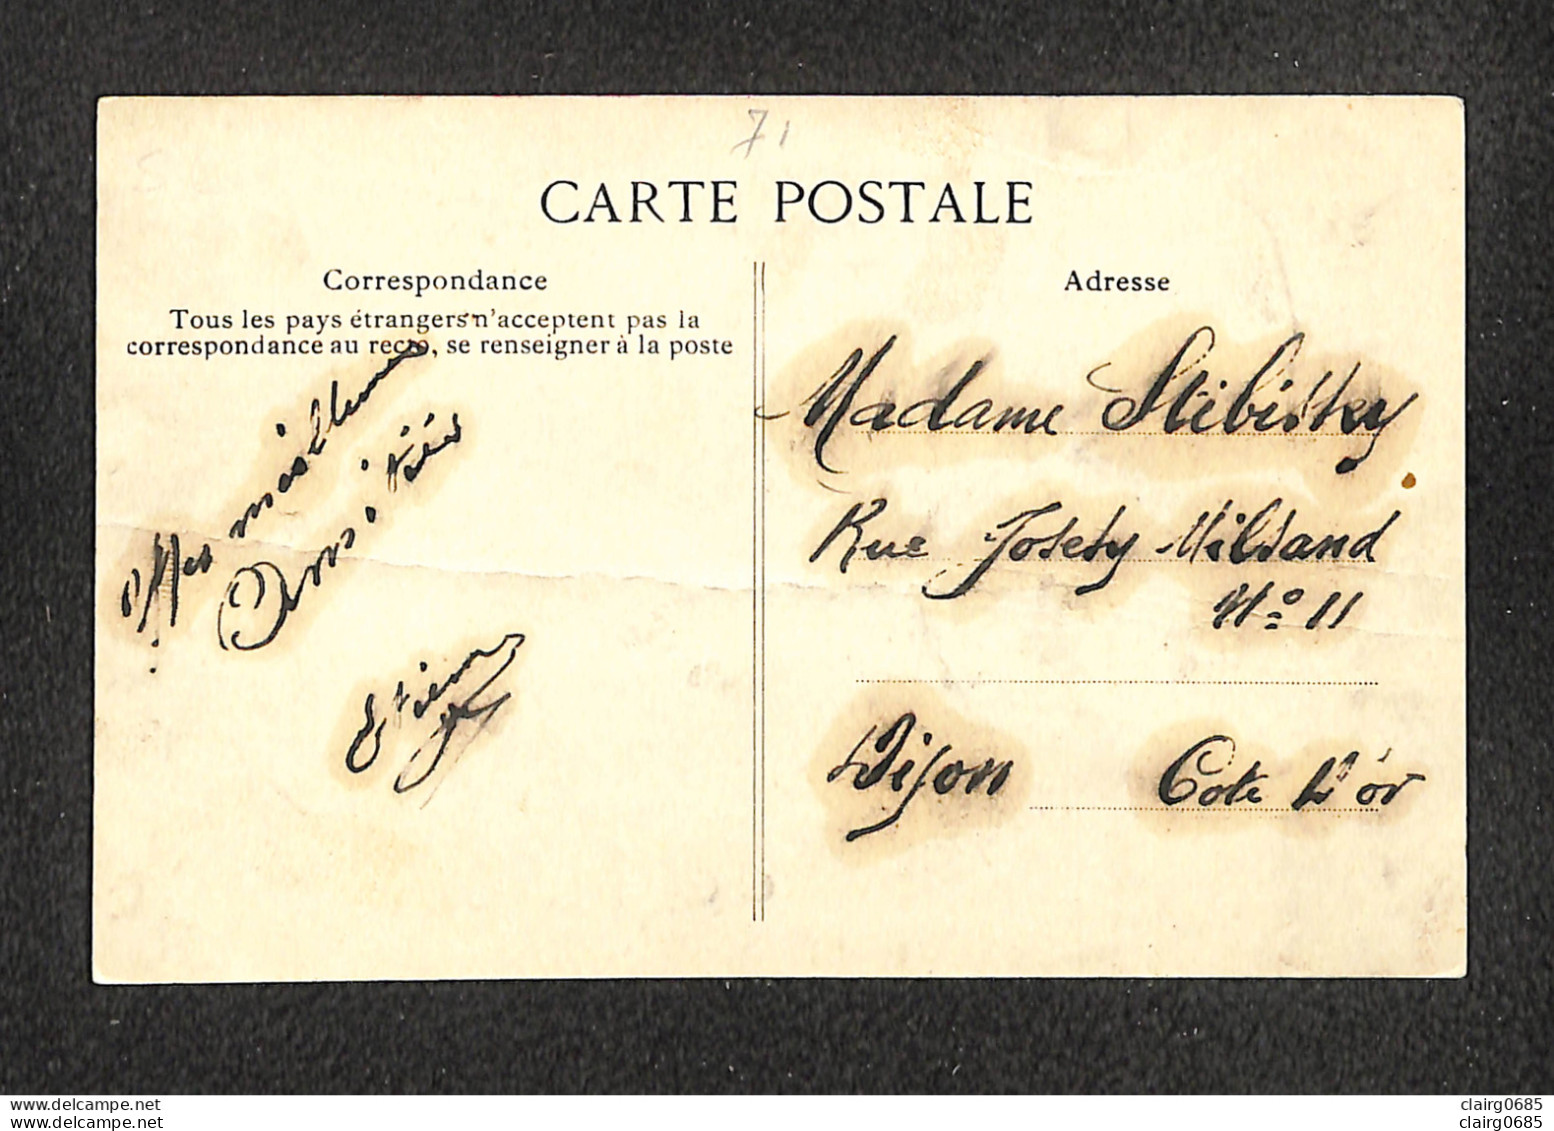 71
CARTE POSTALE
Correspondance
Tous les pays étrangers n'acceptent pas la
correspondance au recto, se renseigner à la poste
Mes meilleures
Amitiés
Etienne
Adresse
Madame
Rue Milsand
No 11
Dijon Cote d'or
www.delcampe.net
www.delcampe.net
clairg0685
clairg0685